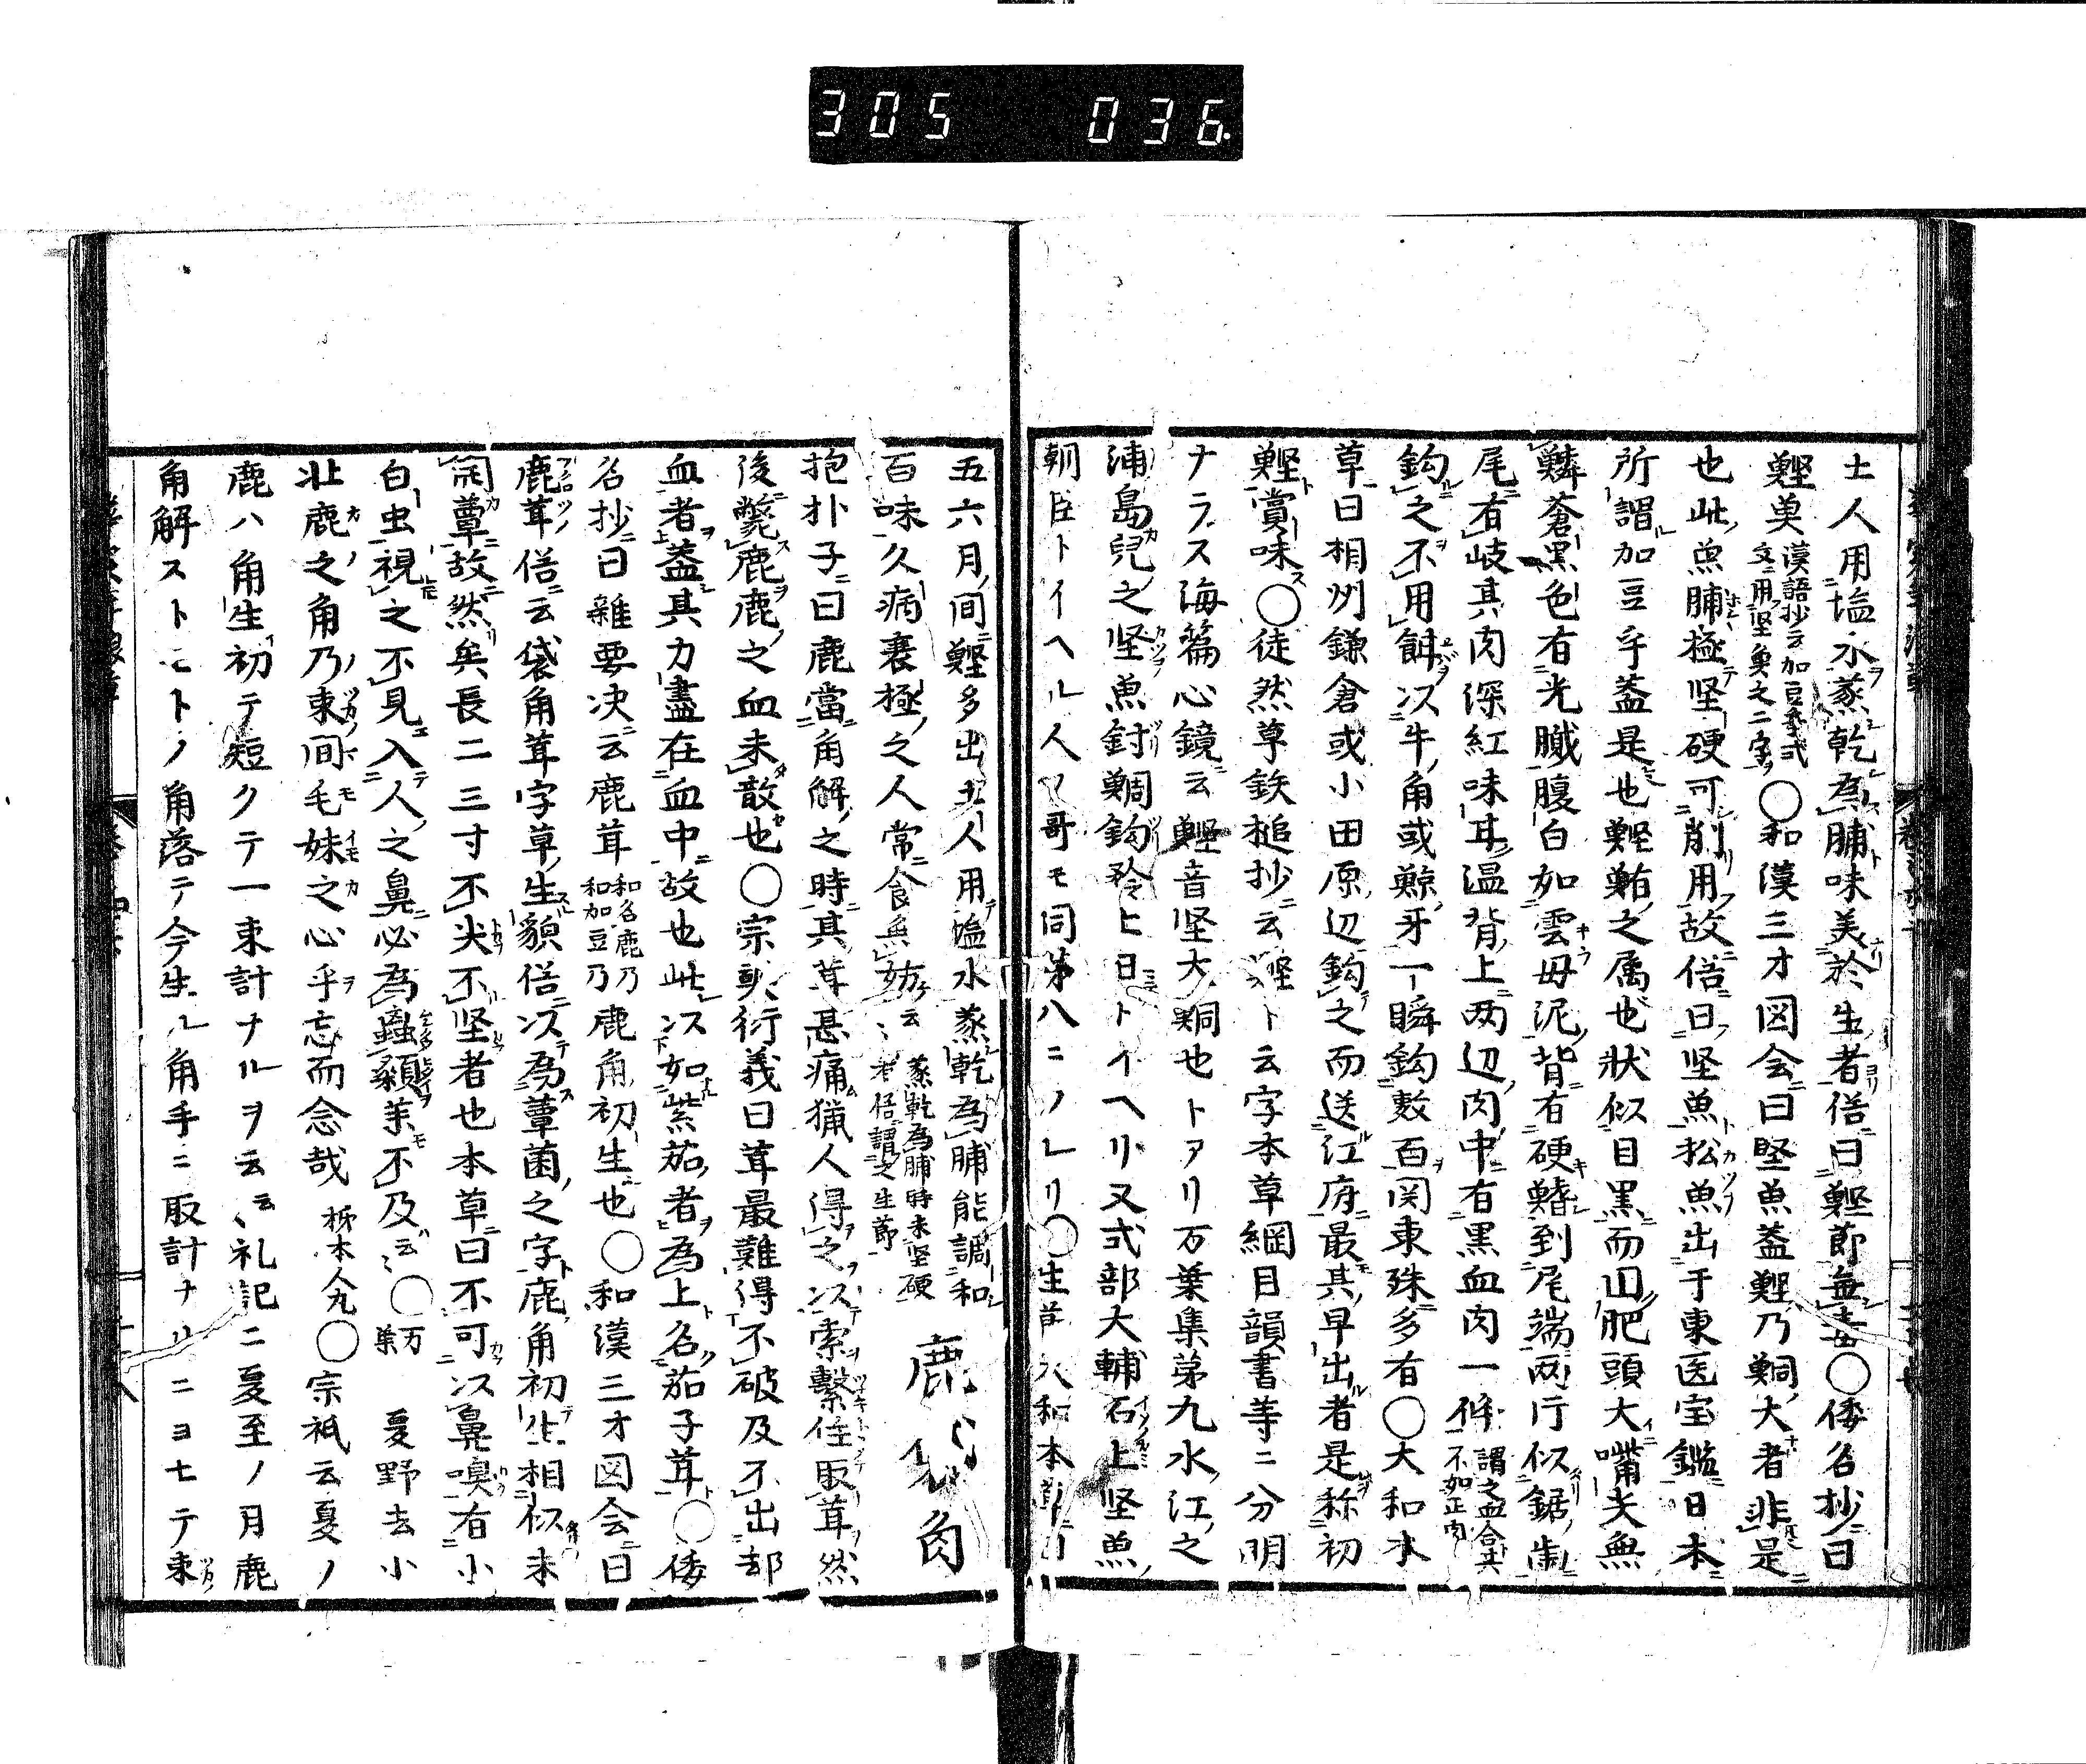 305 036.
士人用塩水蒸乾為脯味美於生者俗曰鰹節無毒○倭名抄曰
鰹奠 漢語抄云加豆乎式文用堅奠之二字 ○和漢三才図会曰堅魚盖鰹乃鮦大者非是
也此魚脯極堅硬可削用故俗曰堅魚松魚出于東医宝鑑日本
所謂加豆乎盖是也鰹鮪之属也状似目黒而円肥頭大嘴尖無
鱗蒼黒色有光膩腹白如雲母泥背有硬鰭到尾端両行似鋸歯
尾有岐其肉深紅味耳温背上両辺肉中有黒血肉一條 謂之血合共不如正肉
鈎之不用餌以牛角或鯨牙一瞬鈎数百関東殊多有○大和本
草曰相州鎌倉或小田原辺鈎之而送江府最其早出者是称初
鰹賞味○徒然草鉄槌抄云鰹ト云字本草綱目韻書等ニ分明
ナラス海篇心鏡云鰹音堅大鮦也トアリ万葉集第九水江之
浦島兒之堅魚釣鯛釣矜ヒ日トイヘリ又式部大輔石上堅魚
朝臣トイヘル人ノ哥モ同第八ニノレリ○生 大和本草曰
五六月間鰹多出土人用塩水蒸乾為脯能調和
百味久病衰極之人常食無妨云 蒸乾為脯時未堅硬者俗謂之生節 鹿 角
抱朴子曰鹿當角解之時其茸甚痛猟人得之以索繋住取茸然
後斃鹿鹿之血未散也○宗奭衍義曰茸最難得不破及不出却
血者盖其力盡在血中故也此以如紫茄者為上名茄子茸○倭
名抄曰雜要决云鹿茸 和名鹿乃和加豆乃 鹿角初生也○和漢三才図会曰
鹿茸俗云袋角茸字草生貌俗以為蕈菌之字鹿角初生相似未
開蕈故然矣長二三寸不尖不堅者也本草曰不可以鼻嗅有小
白虫視之不見入人之鼻必為蟲顙薬不及云〻○万葉 夏野去小
壮鹿之角乃束間毛妹之心乎忘而念哉 柿本人丸○宗祇云夏ノ
鹿ハ角生初テ短クテ一束計ナルヲ云云〻礼記ニ夏至ノ月鹿
角解ストモトノ角落テ今生ル角手ニ取計ナルニヨセテ束